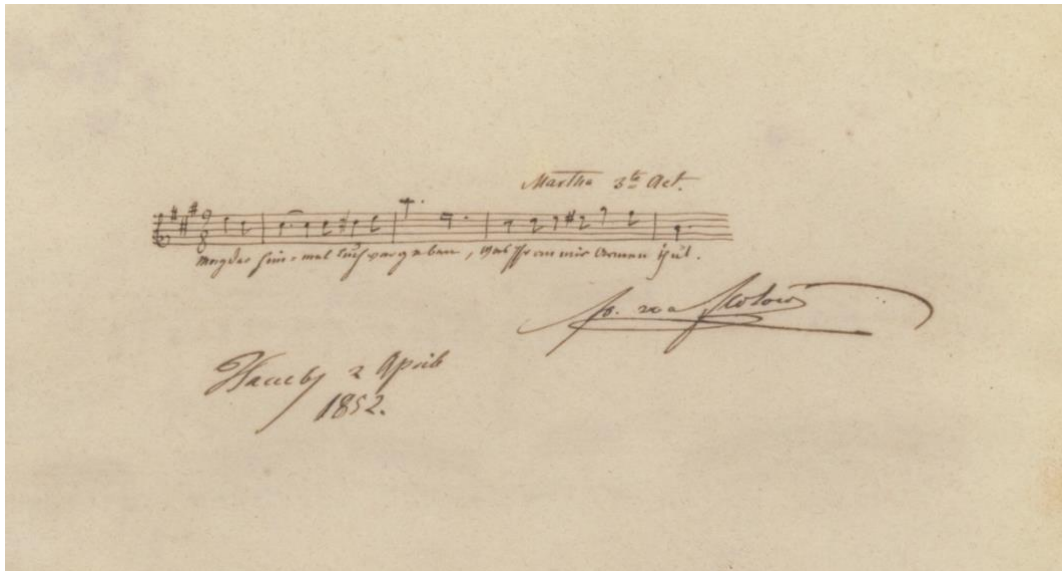 Martha 3te Act.
Mag der Him-mel Euch vergeben, was Ihr an mir Armen thut.
Fr. v. Flotow
2 April
1852.